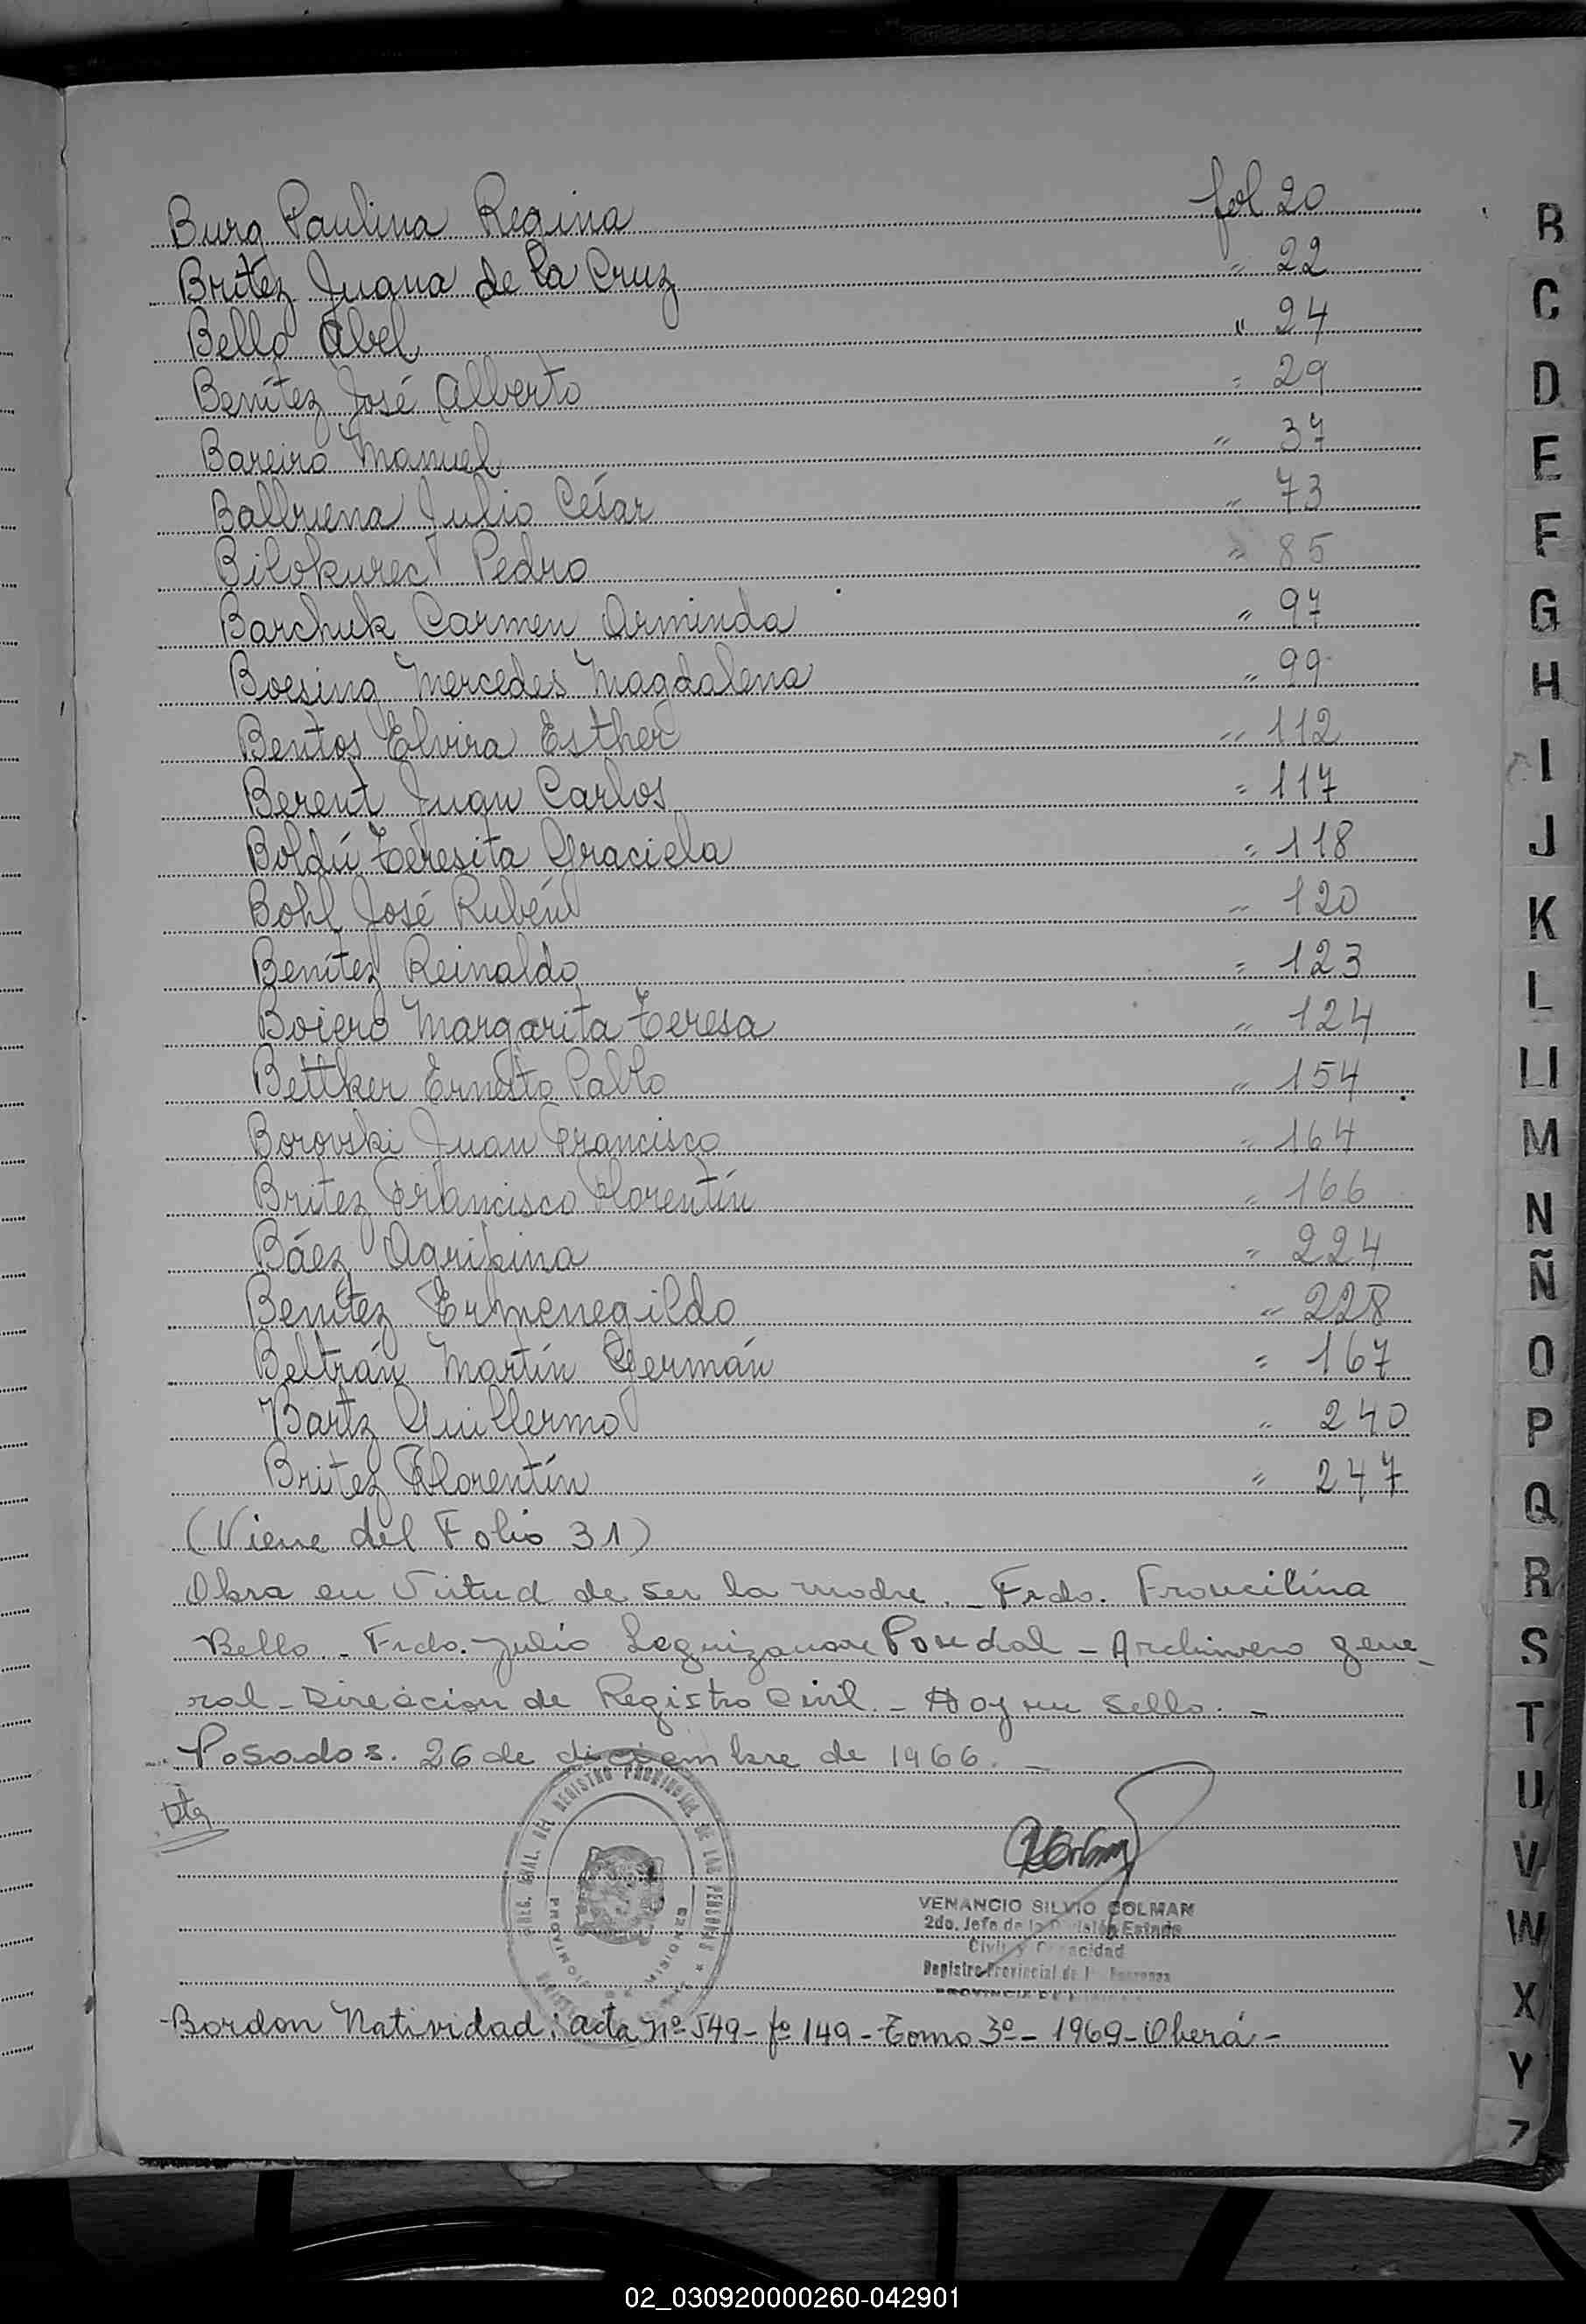 Burg Paulina Regina fol 20
Britez Juana de la Cruz " 22
Bello Abel " 24
Benítez José Alberto " 29
Bareiro Manuel " 37
Balbuena Julio César " 73
Bilokurec Pedro " 85
Barchuk Carmen Arminda " 97
Boesing Mercedes Magdalena " 99
Bentos Elvira Esther " 112
Berent Juan Carlos " 117
Boldú Teresita Graciela " 118
Bohl José Rubén " 120
Benítez Reinaldo " 123
Boiero Margarita Teresa " 124
Bettker Ernesto Pablo " 154
Borovski Juan Francisco " 164
Britez Francisco Florentín " 166
Báez Agripina " 224
Benítez Ermenegildo " 228
Beltrán Martín Germán " 167
Bartz Guillermo " 240
Britez Florentín " 247
(Viene del Folio 31)
Obra en Virtud de ser la madre. - Frdo. Francilina
Bello. - Frdo. Julio Leguizamon Pondal - Archivero gene-
ral - Dirección de Registro Civil. - Hay un Sello. -
Posadas. 26 de diciembre de 1966. -
REG. GRAL. DEL REGISTRO PROVINCIAL DE LAS PERSONAS *
PROVINCIA
VENANCIO SILVIO COLMAN
2do. Jefe de la División Estado
Civil y Capacidad
Registro Provincial de las Personas
Bordon Natividad: acta Nº 549 - fº 149 - Tomo 3º - 1969 - Oberá -
B
C
D
E
F
G
H
I
J
K
L
Ll
M
N
Ñ
O
P
Q
R
S
T
U
V
W
X
Y
Z
02_030920000260-042901